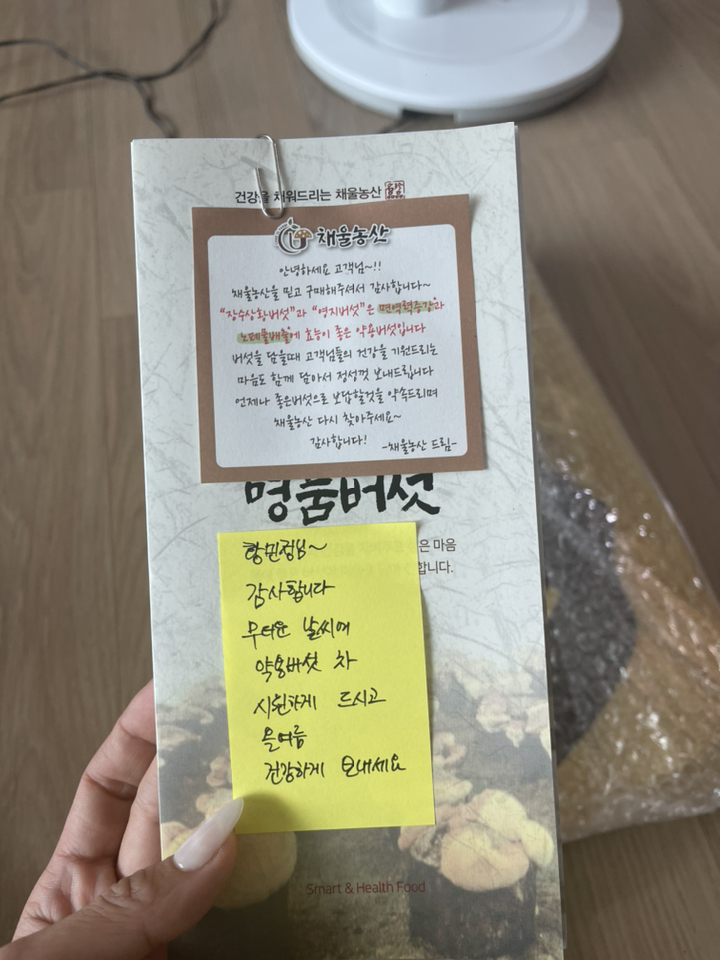 건강을 채워드리는 채울농산
채울농산
안녕하세요 고객님~!!
채울농산을 믿고 구매해주셔서 감사합니다~
“장수상황버섯”과 “영지버섯”은 면역력증강과
노폐물배출에 효능이 좋은 약용버섯입니다
버섯을 담을때 고객님들의 건강을 기원드리는
마음도 함께 담아서 정성껏 보내드립니다
언제나 좋은버섯으로 보답할것을 약속드리며
채울농산 다시 찾아주세요~
감사합니다! -채울농산 드림-
명품버섯
은 마음
합니다.
황민정님~
감사합니다
무더운 날씨에
약용버섯 차
시원하게 드시고
올여름
건강하게 보내세요
Smart & Health Food